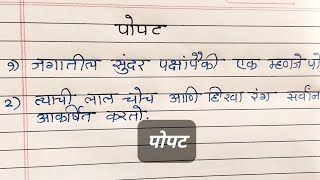 पोपट
१) जगातील सुंदर पक्षांपैकी एक म्हणजे पो
2) त्याची लाल चोच आणि हिरवा रंग सर्वान
आकर्षित करतो.
पोपट